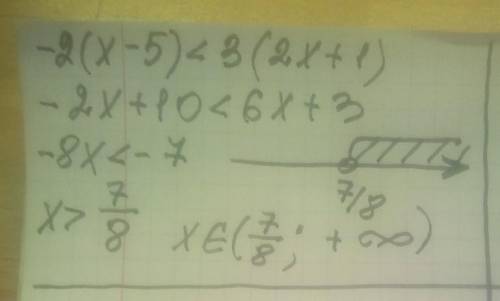 -2(x-5)<3(2x+1)
-2x+10<6x+3
-8x<-7
7/8
x>7/8 x∈(7/8; +∞)